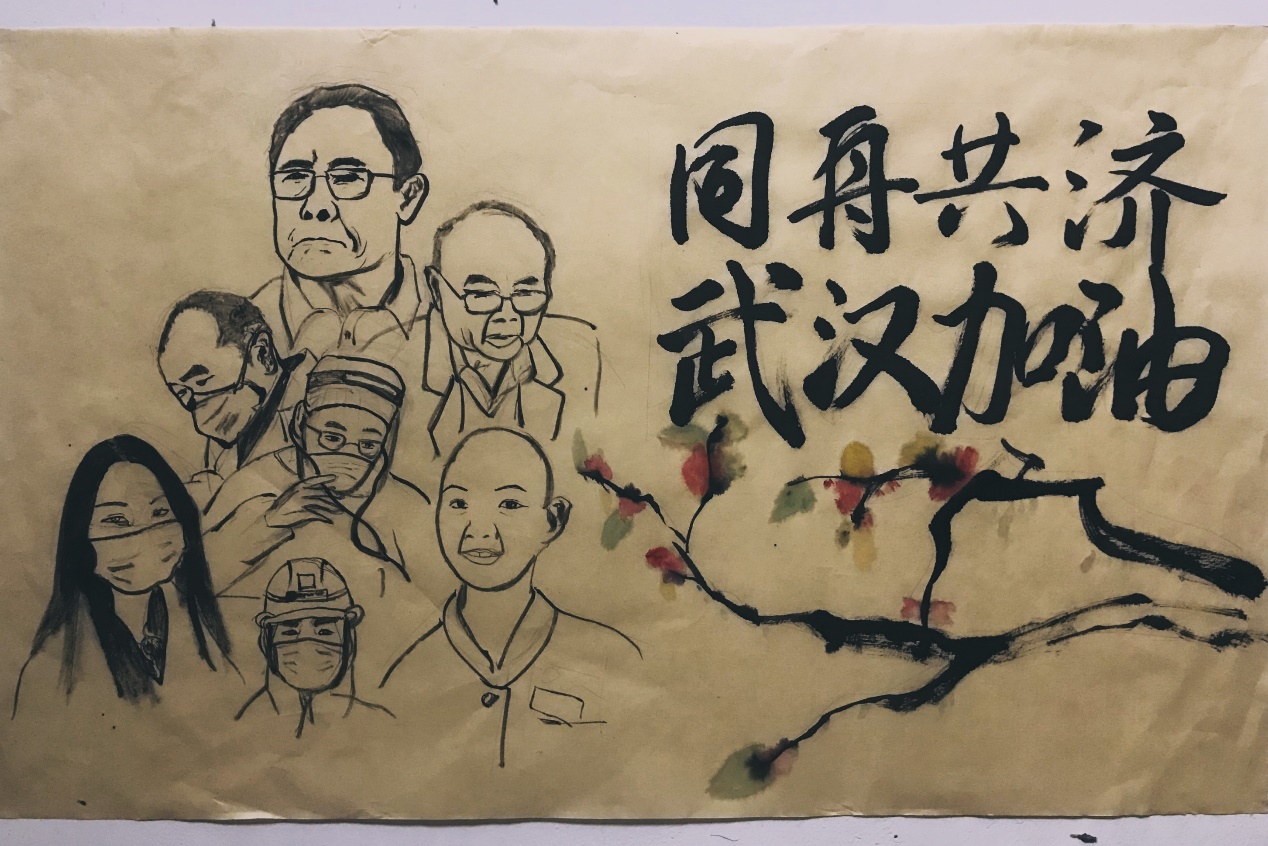 同舟共济
武汉加油